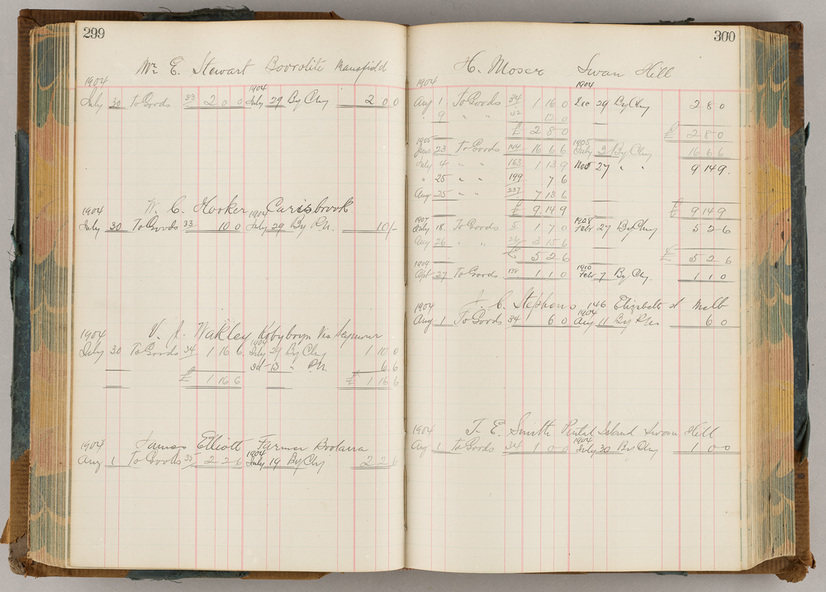 299
Mr E. Stewart Boorolite Mansfield
1904 1904
July 30 To Goods 33 2 0 0 July 29 By Chq 2 0 0
W. C. Hooker Carisbrook
1904 1904
July 30 To Goods 33 10 0 July 29 By P.N. 10/-
V. J. Wakley Via Seymour
1904 1904
July 30 To Goods 34 1 16 6 July 29 By Chq 1 10 0
" P.N. 6 6
£ 1 16 6 £ 1 16 6
James Elliott Farmer Boolarra
1904 1904
Aug 1 To Goods 35 2 2 6 July 19 By Chq 2 2 6
300
H. Moser Swan Hill
1904 1904
Aug 1 To Goods 34 1 16 0 Dec 29 By Chq 2 8 0
9 " " 42 12 0
£ 2 8 0 £ 2 8 0
1905 1905
23 To Goods 16 6 6 By Chq 16 6 6
July 4 " " 163 1 13 9 Nov 27 " " 9 14 9
" 25 " 199 7 6
Aug 25 " " 237 7 13 6
£ 9 14 9 £ 9 14 9
1907 1908
July 18 To Goods 5 1 7 0 Feb 27 By Chq 5 2 6
Aug 26 " " 3 15 6
£ 5 2 6 £ 5 2 6
1909 1910
Apl 27 To Goods 1 1 0 Feb 7 By Chq 1 1 0
J. C. Stephens 146 Elizabeth St Melb
1904 1904
Aug 1 To Goods 34 6 0 Aug 11 By P.N. 6 0
T. E. Smith Pental Island Swan Hill
1904 1904
Aug 1 To Goods 34 1 0 0 July 30 By Chq 1 0 0